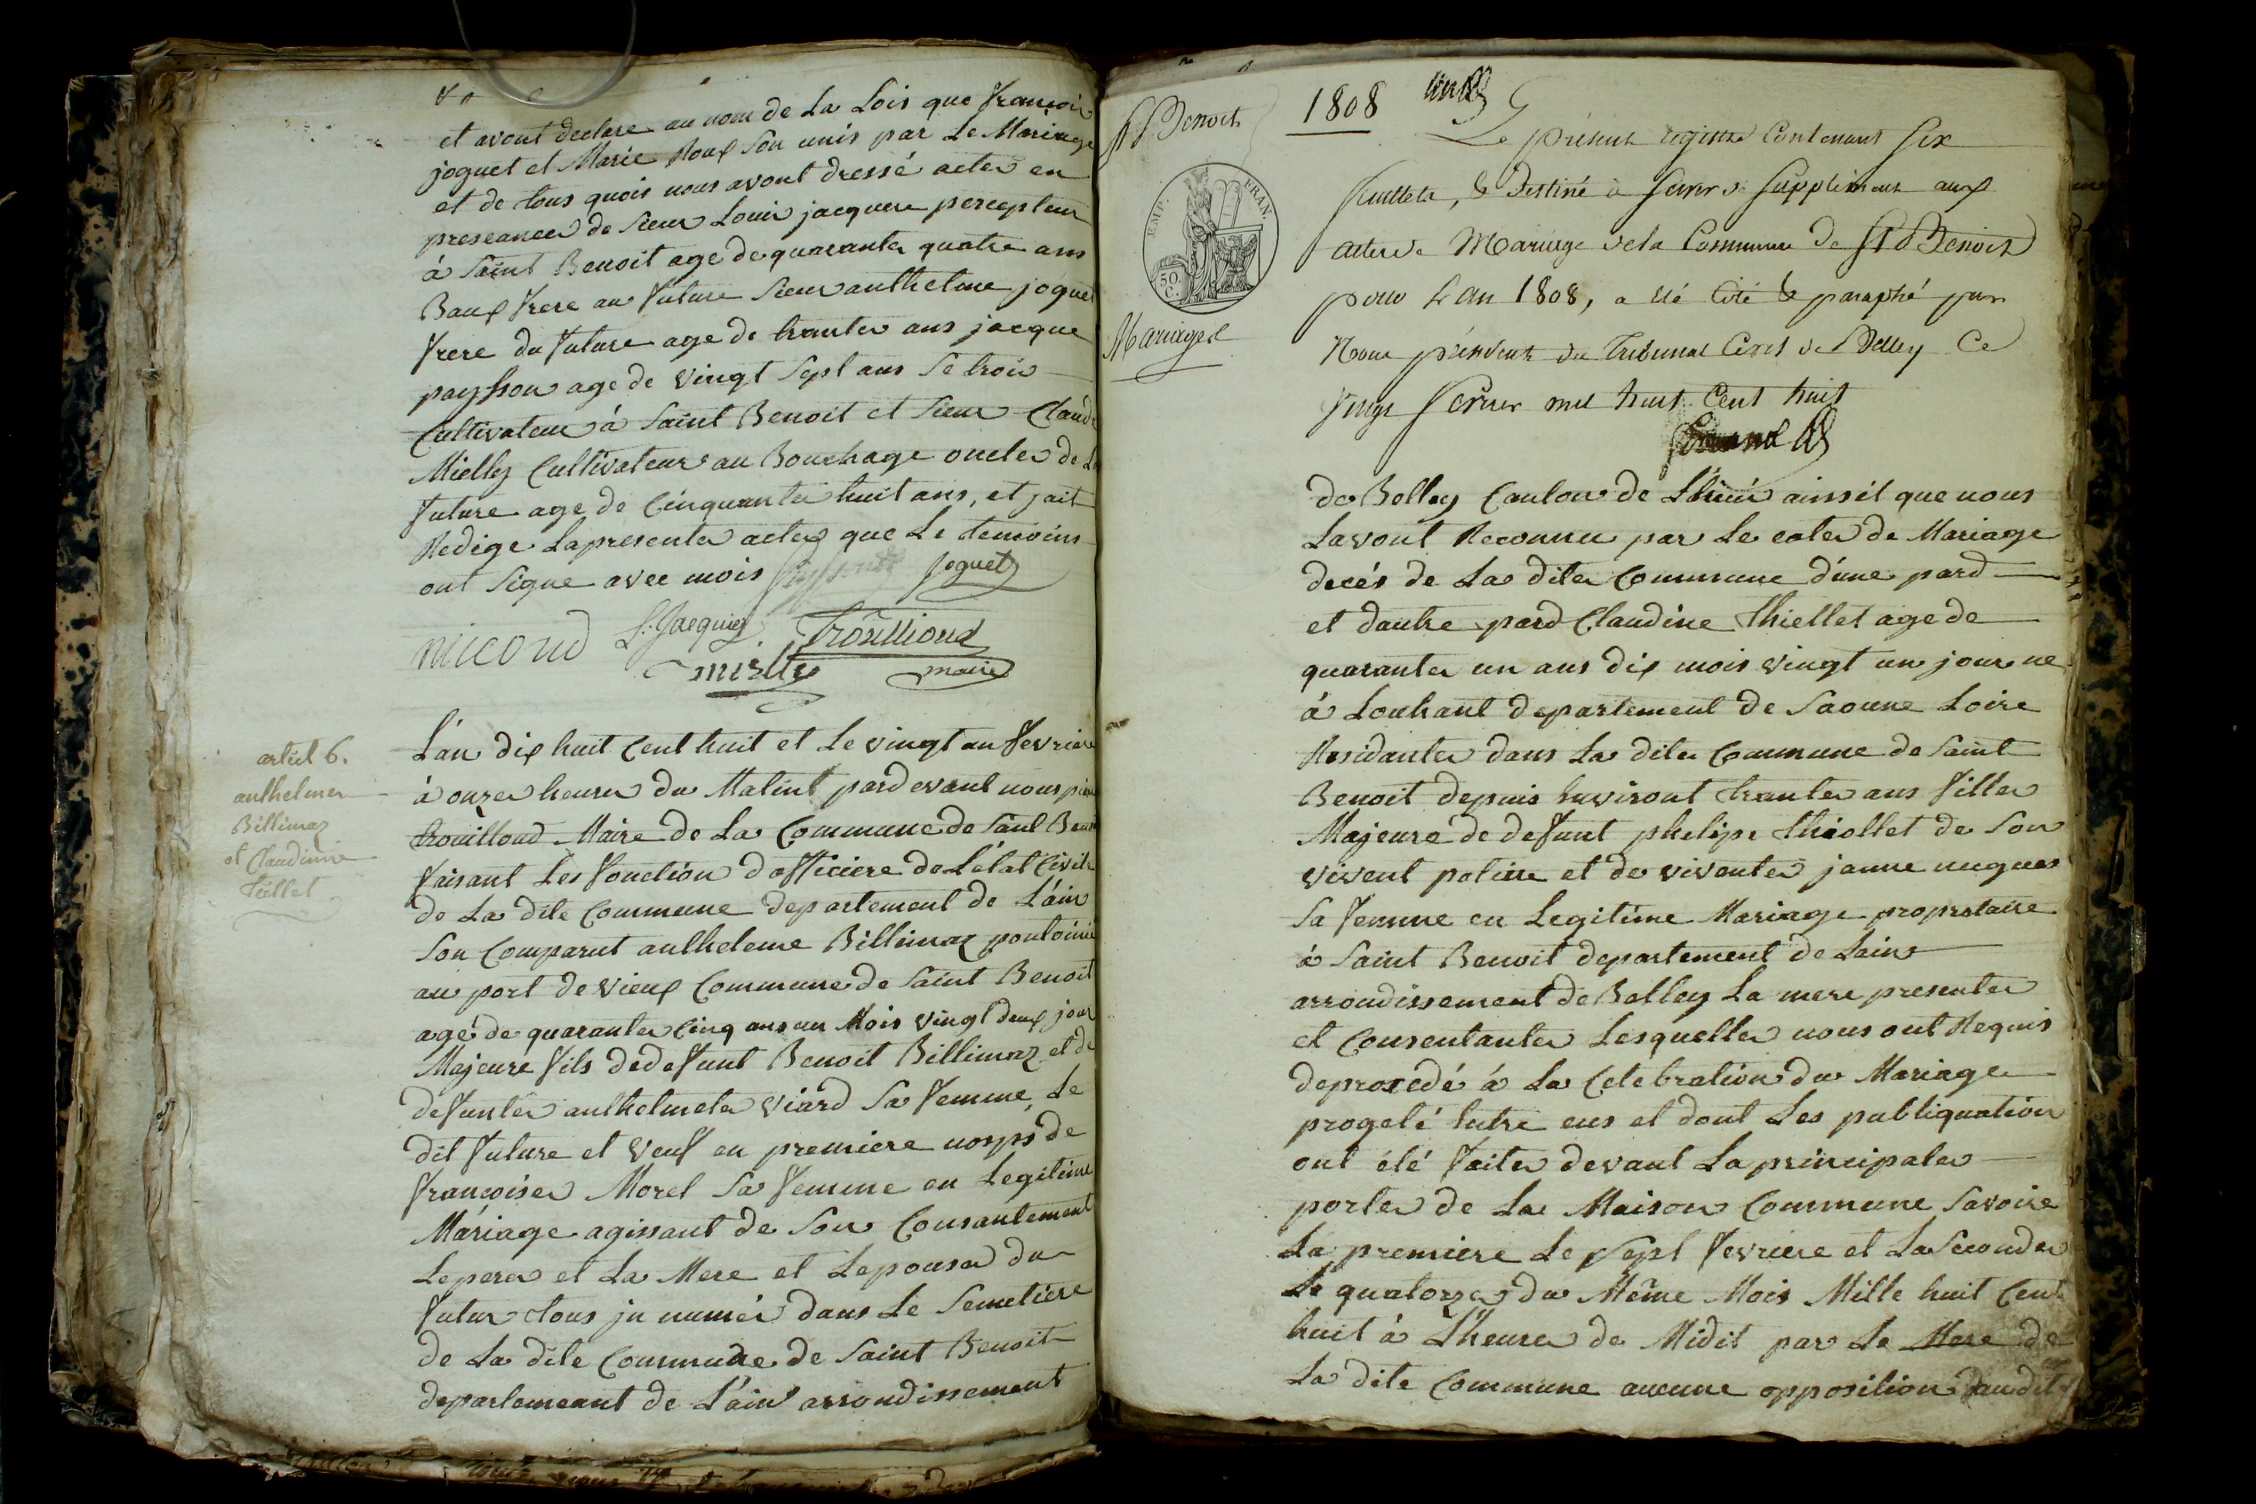 et avont declare au nom de La Lois que françois
joguet et Marie Roux son unis par Le Mariage
et de tous quois nous avont dressé acter en
preseance de sieur Louis jacquere percepteur
à Saint Benoit age de quaranter quatre ans
Baux frere au future sieur anthelme joguet
frere du future age de tranter ans jacque
paysson age de vingt sept ans se trois
Cultivateur à Saint Benoit et sieur Claude
Mielly Cultivateur au Bouchage oncler de La
future age de Cinquanter huit ans, et fait
Redige Lapresenter acter que Le temoins
ont signe avec mois joguet
nicoud L. Jacquier Trouilliond
mielly maire
artict 6.
anthelmer
Billimaz
et Claudinne
Tiellet
L'an dix huit Cent huit et Le vingt un fevriere
à onzer heurer du Matint pard evant nous pierre
trouilloud Maire de La Commune de Saint Benoit
faisant Les fonction d'officiere de L'état Civile
de La dite Commune departement de L'ain
son Comparut antheleme Billimaz pontonie
au port de vieux Commune de Saint Benoit
agé de quaranter Cinq ans un Mois vingt deux jour
Majeure fils dedefunt Benoit Billimaz et de
defunter anthelmeter viard sa femme, Le
dit future et veuf en premiere nosps de
françoiser Morel sa femme en Legitime
Mariage agissant de son Consantement
Leperer et La Mere et Lepouser du
futur tous ju numér dans Le Semetiere
de La dite Commune de Saint Benoit
departemeant de L'ain arrondissement
St Benoit
1808
EMP. FRAN.
50 C.
Mariages
Le présent registre Contenant Six
feuillets, & Destiné à servir de supplément aux
actes de Mariage de la Commune de St Benoit
pour L'an 1808, a été Coté & paraphé par
Nous président du Tribunal Civil de Belley Ce
vingt fevrier mil huit Cent huit
de Belley Canton de Lhuis ainsit que nous
Lavont Reconnu par Le eater de Mariage
decés de La diter Commune d'une pard
et dautre pard Claudine Thiellet age de
quaranter un ans dix mois vingt un jour ne
à Louhant departement de Saoune Loire
Residanter dans La diter Commune de Saint
Benoit depuis Environt tranter ans filler
Majeure de defunt phelipe thiollet de son
vivent potiere et de viventer janne nugues
sa femme en Legitime Mariage proprotaire
à Saint Benoit departement de Lain
arrondissement de Belley La mere presenter
et Consentanter Lesqueller nous ont Requis
deprocedé à La Celebration du Mariage
progeté Entre eus et dont Les publiquation
ont été faiter devant La principaler
porter de La Maison Commune Savoire
La premiere Le Sept fevriere et La Seconder
Le quatorzer du Même Mois Mille huit Cent
huit à L'heurer de Midit par Le Mere de
La dite Commune aucune opposition